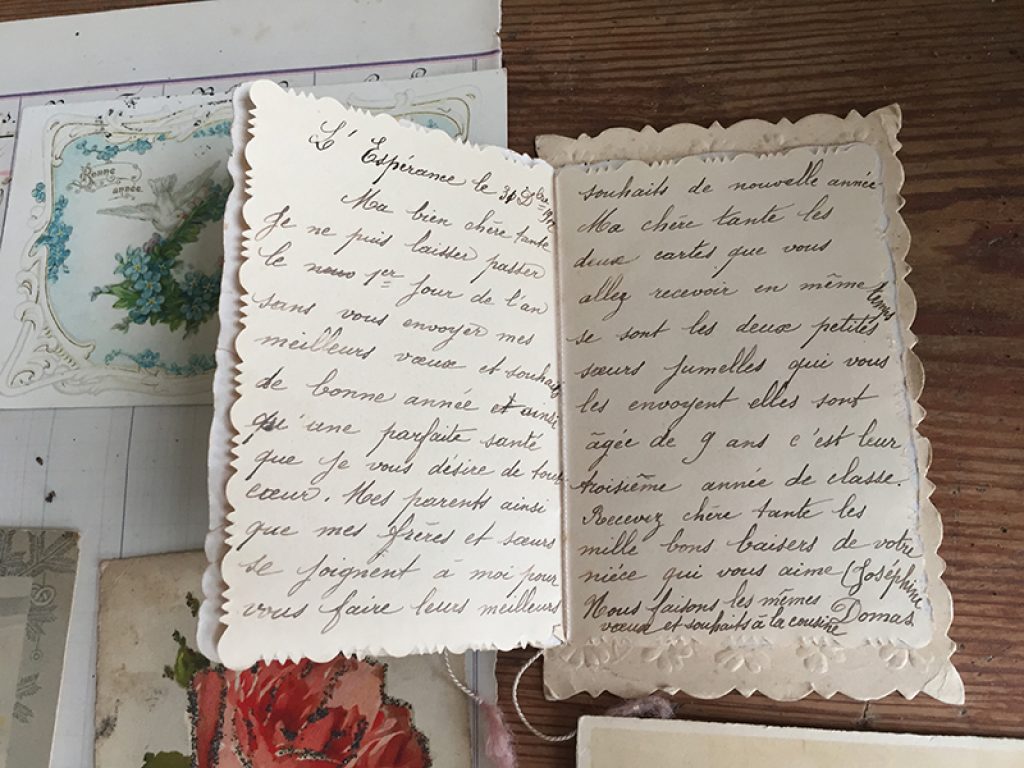 Bonne
année
L'Espérance le 30 Dbre
Ma bien chère tante
Je ne puis laisser passer
le 1er Jour de l'an
sans vous envoyer mes
meilleurs vœux et souhaits
de bonne année et ainsi
qu'une parfaite santé
que je vous désire de tout
cœur. Mes parents ainsi
que mes frères et sœurs
se joignent à moi pour
vous faire leurs meilleurs
souhaits de nouvelle année
Ma chère tante les
deux cartes que vous
allez recevoir en même tems
se sont les deux petites
sœurs jumelles qui vous
les envoyent elles sont
âgée de 9 ans c'est leur
troisième année de classe.
Recevez chère tante les
mille bons baisers de votre
niéce qui vous aime (Joséphine
Domas
Nous faisons les mêmes
vœux et souhaits à la cousine